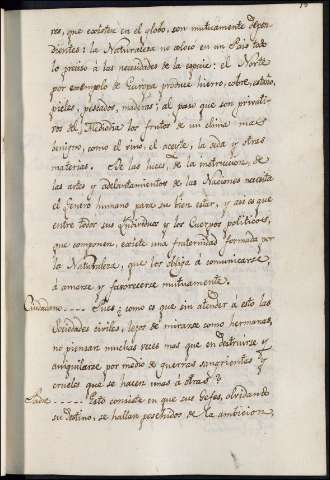 res, que existen en el globo, son mutuamente depen-
dientes: la Naturaleza no coloco en un Pais todo
lo preciso á las necesidades de la especie: el Norte
por exemplo de Europa produce hierro, cobre, estaño,
pieles, pescados, maderas; al paso que son privati-
vos del Mediodia los frutos de un clima mas
benigno, como el vino, el aceyte, la seda y otras
materias. De las luces, de la instruccion, de
las artes y adelantamientos de las Naciones necesita
el Genero humano para su bien estar, y asi es que
entre todos sus Yndividuos y los Cuerpos politicos,
que componen, existe una fraternidad formada por
la Naturaleza, que los obliga á comunicarse,
á amarse y favorecerse mutuamente.
Ciudadano ---- Pues ¿como es que sin atender á esto las
Sociedades civiles, lejos de mirarse como hermanas,
no piensan muchas veces mas que en destruirse y
aniquilarse por medio de guerras sangrientas y
crueles que se hacen unas á otras?
---- Esto consiste en que sus Gefes, olvidando
su destino, se hallan posehidos de la ambicion,